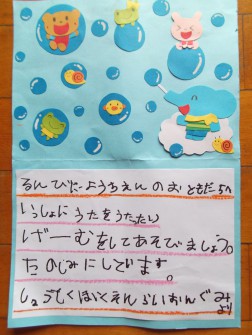 るんびにーようちえんの おともだちへ
いっしょに うたをうたったり
げーむをしてあそびましょう。
たのしみにしてます。
らいおんぐみ
より